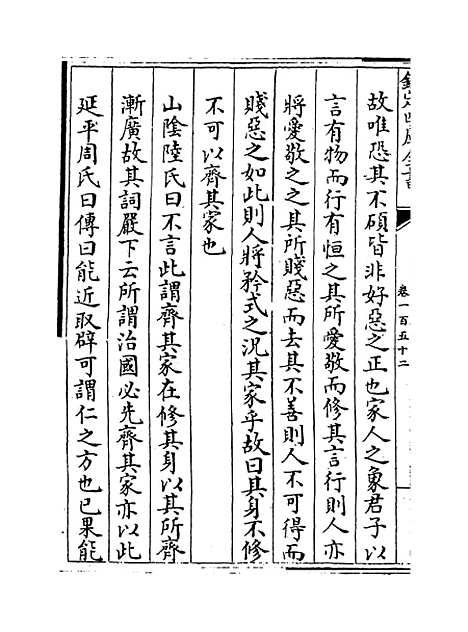 欽定四庫全書
卷一百五十二
故唯恐其不碩皆非好惡之正也家人之象君子以
言有物而行有恒之其所愛敬而修其言行則人亦
將愛敬之之其所賤惡而去其不善則人不可得而
賤惡之如此則人將矜式之況其家乎故曰其身不修
不可以齊其家也
山陰陸氏曰不言此謂齊其家在修其身以其所齊
漸廣故其詞嚴下云所謂治國必先齊其家亦以此
延平周氏曰傳曰能近取辟可謂仁之方也已果能